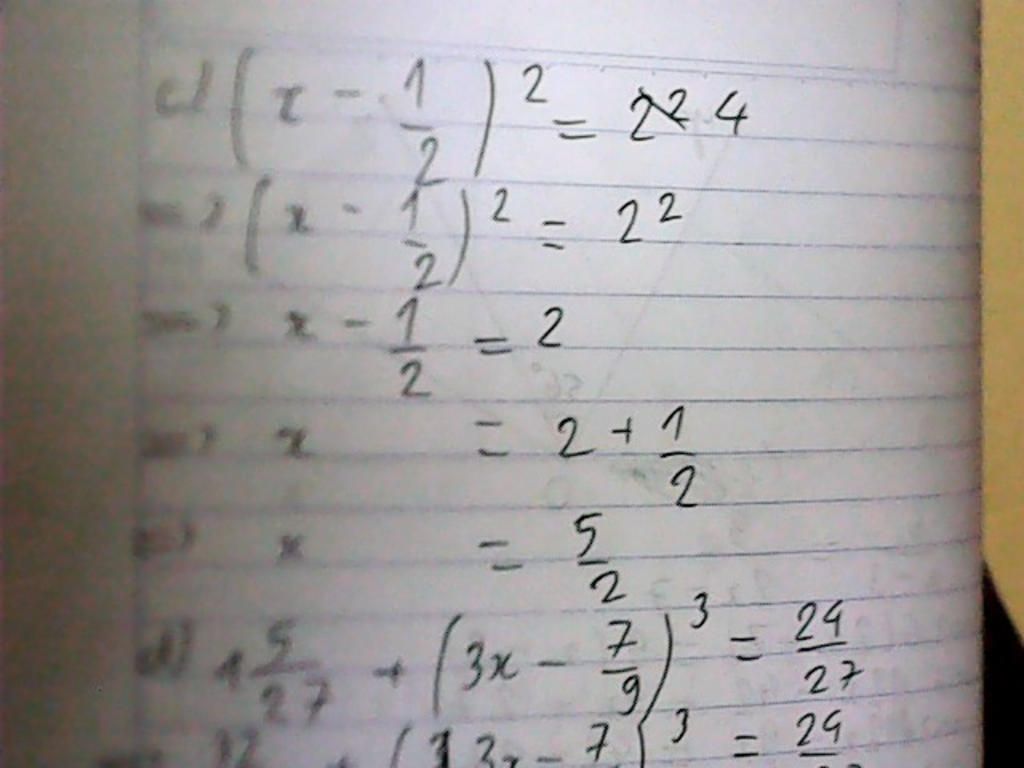 c) (x - 1/2)² = 4
=> (x - 1/2)² = 2²
=> x - 1/2 = 2
=> x = 2 + 1/2
=> x = 5/2
d) 1 5/27 + (3x - 7/9)³ = 24/27
+ ( 3x - 7 )³ = 24